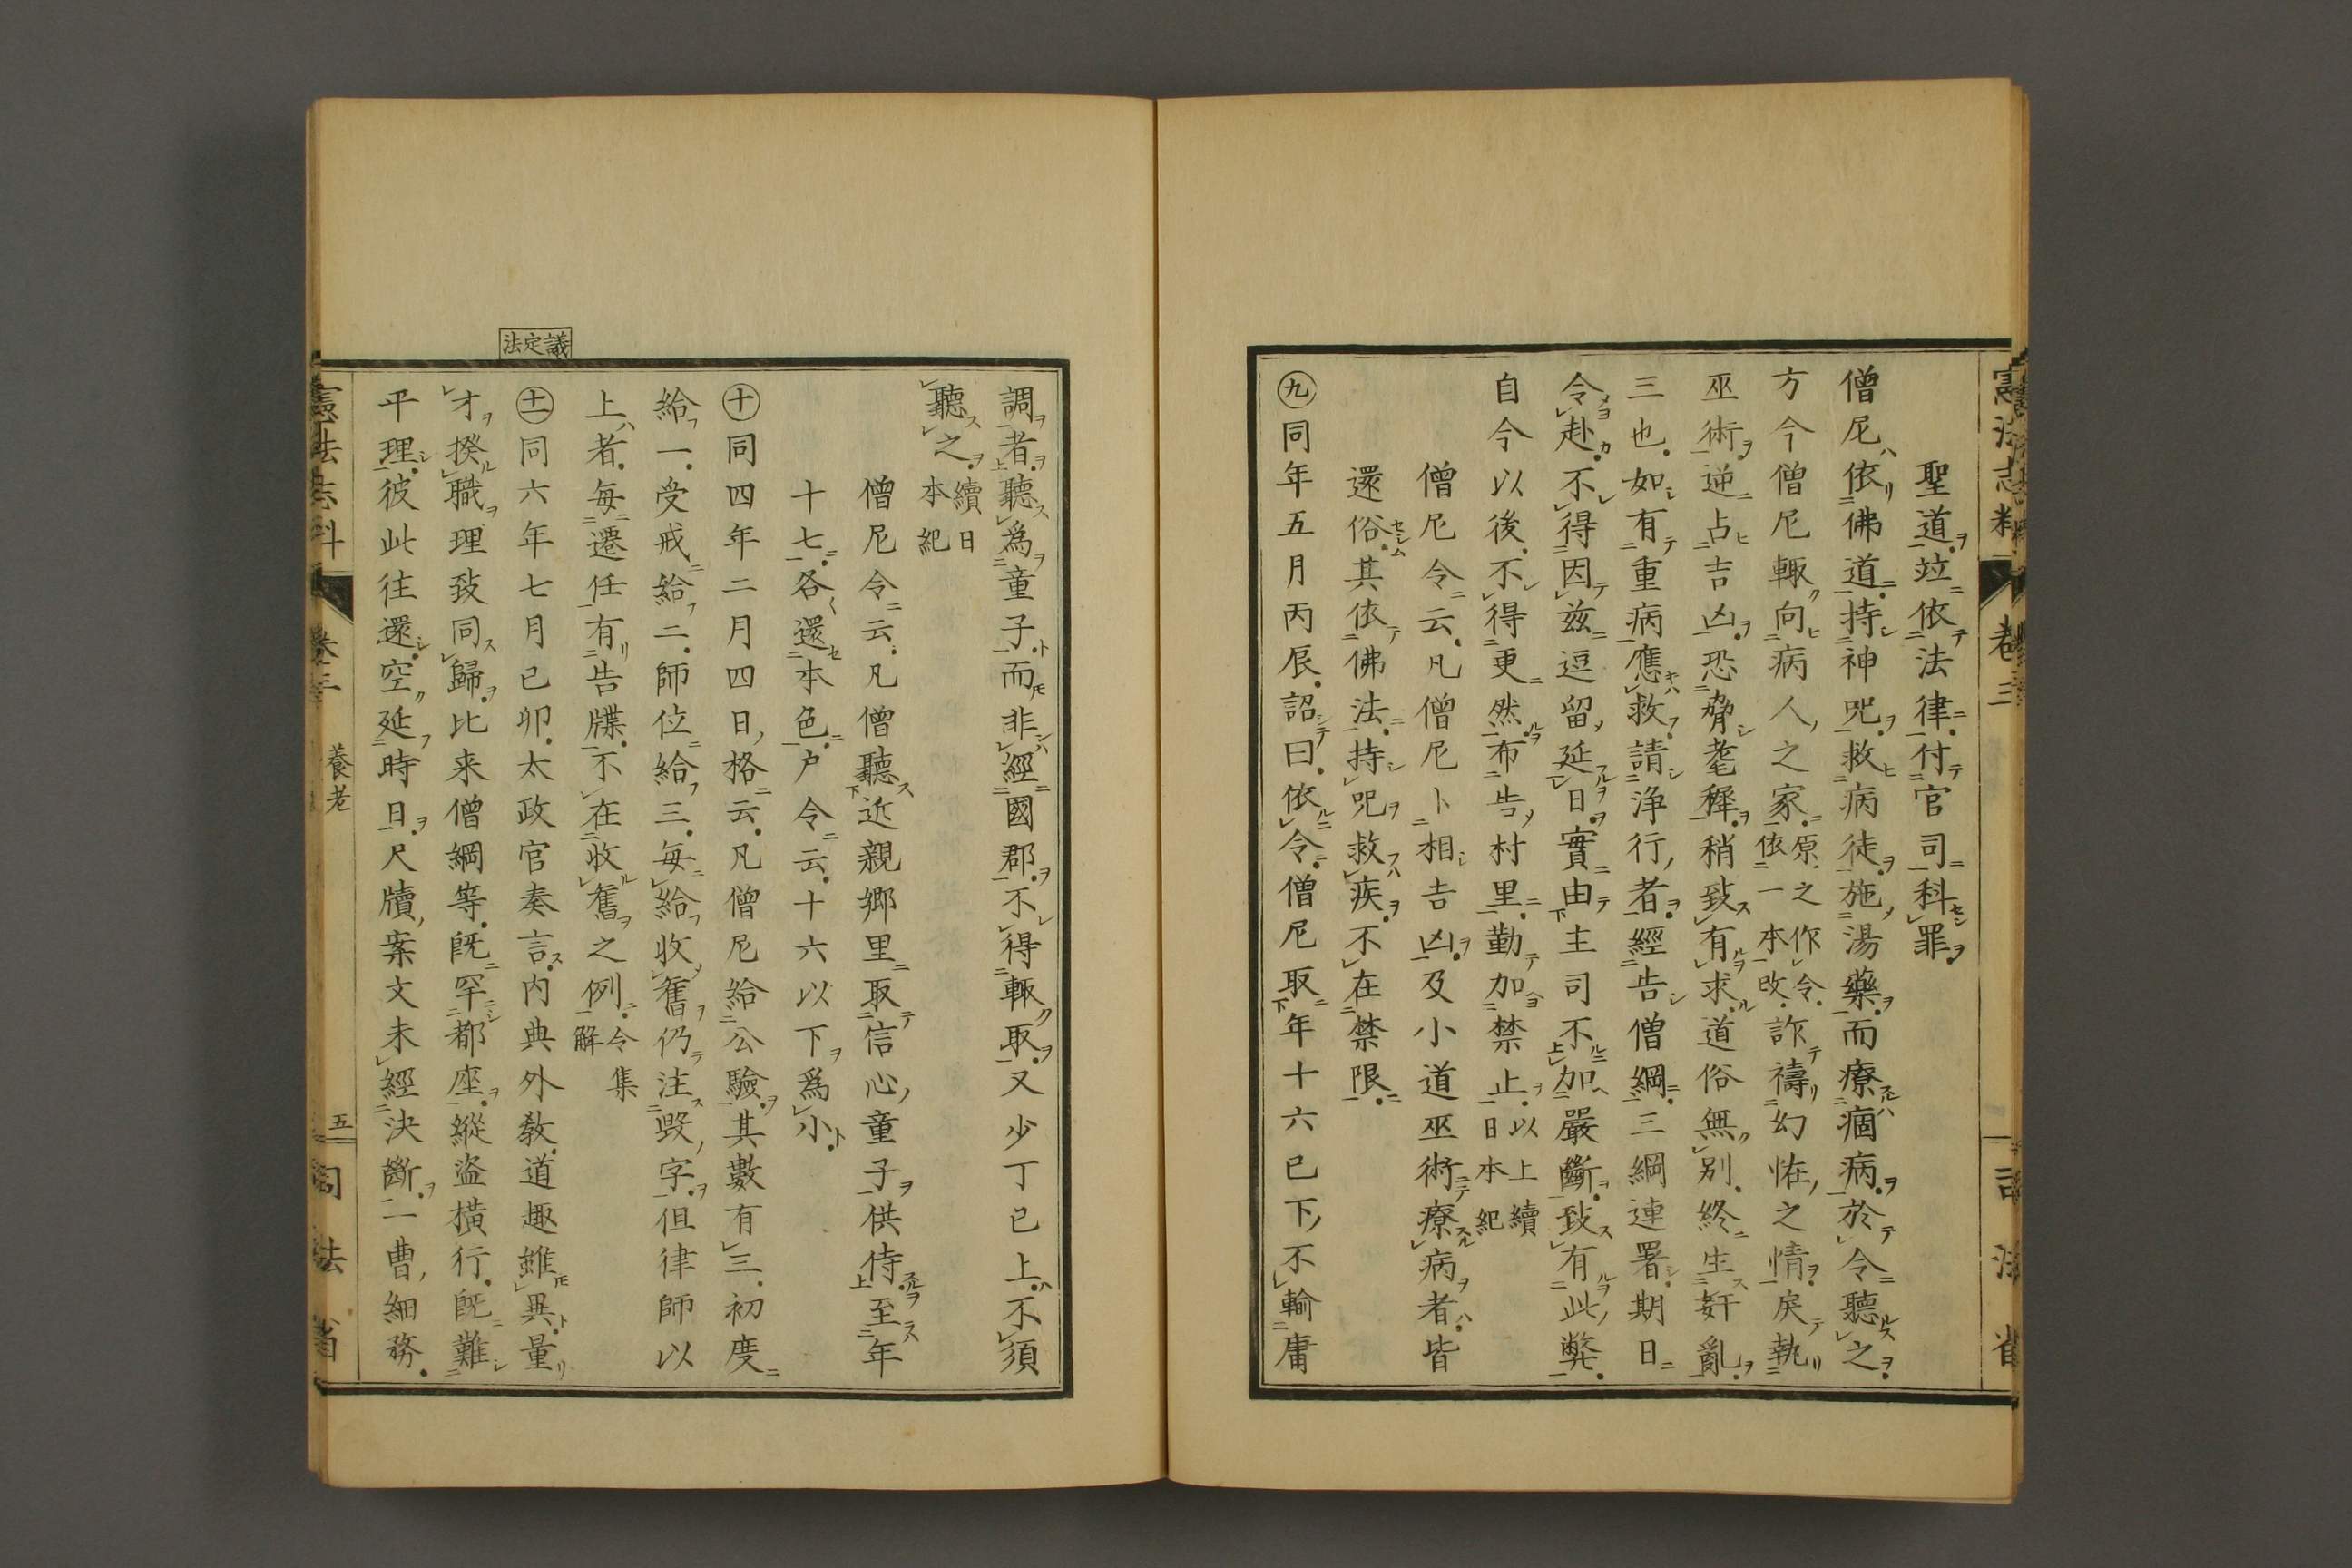 聖道竝依法律付官司科罪
僧尼依佛道持神咒救病徒施湯藥而療痼病於令聽之
方今僧尼輙向病人之家原之作令依一本改詐禱幻恠之情戾執
巫術逆占吉凶恐脅耄穉稍致有求道俗無別終生奸亂
三也如有重病應救請浄行者經告僧綱三綱連署期日
令赴不得因兹逗留延日實由主司不加嚴斷致有此弊
自今以後不得更然布告村里勤加禁止以上續日本紀
僧尼令云凡僧尼卜相吉凶及小道巫術療病者皆
還俗其依佛法持咒救疾不在禁限
九同年五月丙辰詔曰依令僧尼取年十六已下不輸庸
調者聽爲童子而非經國郡不得輙取又少丁已上不須
聽之續日本紀
僧尼令云凡僧聽近親郷里取信心童子供侍至年
十七各還本色户令云十六以下爲小
十同四年二月四日格云凡僧尼給公驗其數有三初度
給一受戒給二師位給三毎給收舊仍注毀字但律師以
上者毎遷任有告牒不在收舊之例令集解
議定法
十一同六年七月己卯太政官奏言内典外敎道趣雖異量
才揆職理致同歸比来僧綱等旣罕都座縱盜橫行旣難
平理彼此往還空延時日尺牘案文未經決斷一曹細務
憲法志料
卷三
養老
五
司法省